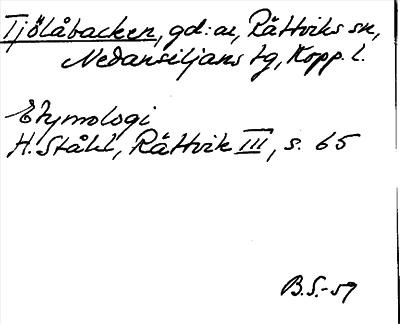 Tjölåbacken, gd:ar, Rättviks sn,
Nedansiljans tg, Kopp. l.
Etymologi
H. Ståhl, Rättvik III, s. 65
B.S.-59